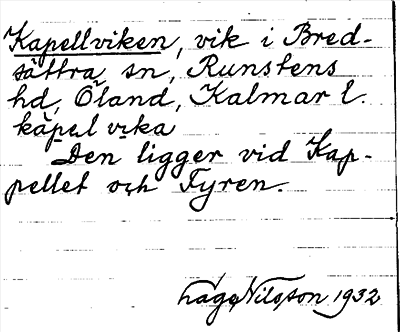 Kapellviken, vik i Bred-
sättra sn, Runstens
hd, Öland, Kalmar l.
kapel vika
Den ligger vid Kap-
pellet och Fyren.
Nilsson 1932